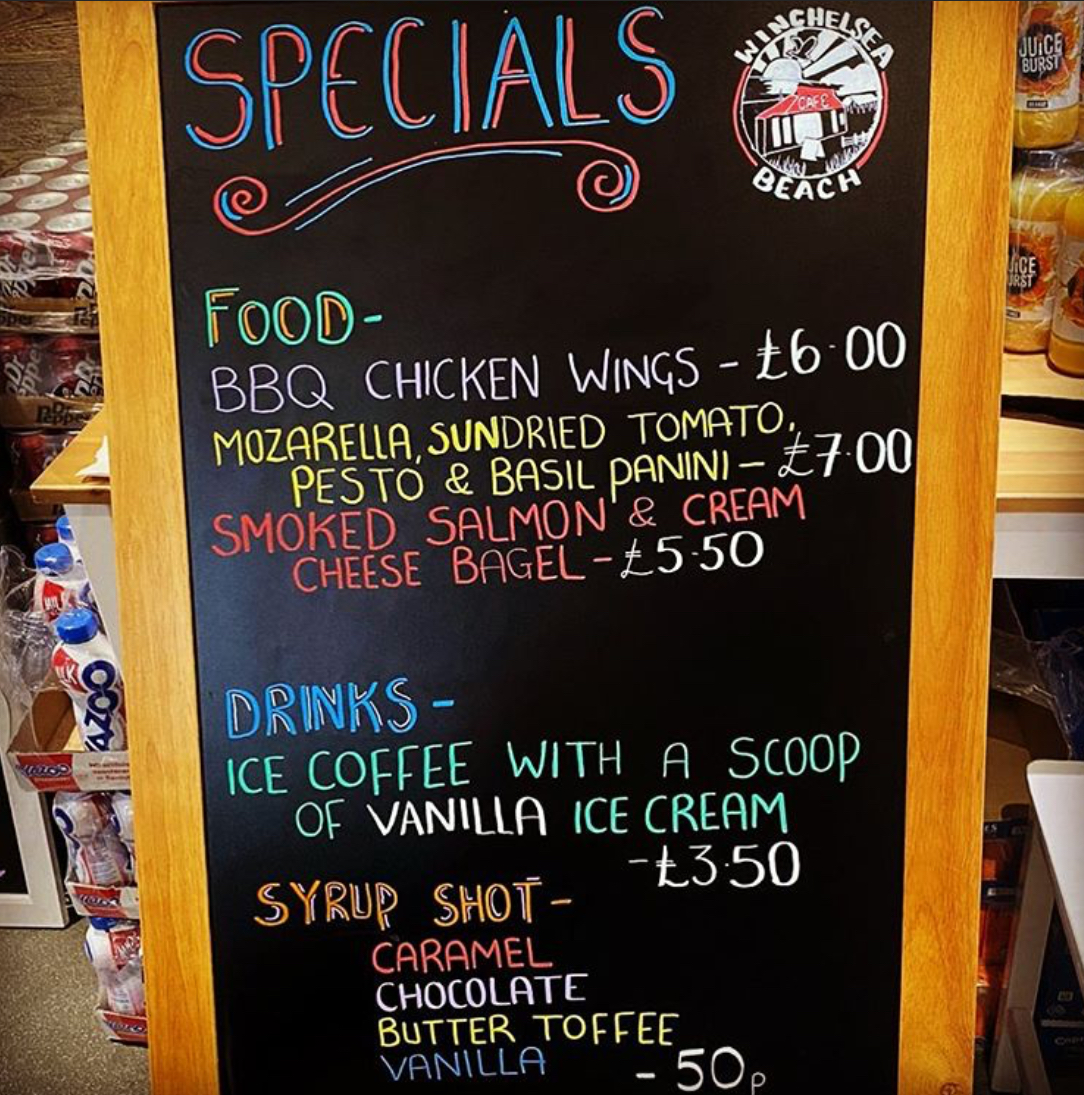 SPECIALS
WINCHELSEA
CAFE
BEACH
FOOD-
BBQ CHICKEN WINGS - £6.00
MOZARELLA, SUNDRIED TOMATO,
PESTO & BASIL PANINI - £7.00
SMOKED SALMON & CREAM
CHEESE BAGEL - £5.50
DRINKS -
ICE COFFEE WITH A SCOOP
OF VANILLA ICE CREAM
- £3.50
SYRUP SHOT -
CARAMEL
CHOCOLATE
BUTTER TOFFEE
VANILLA - 50p
JUICE
BURST
Dr Pepper